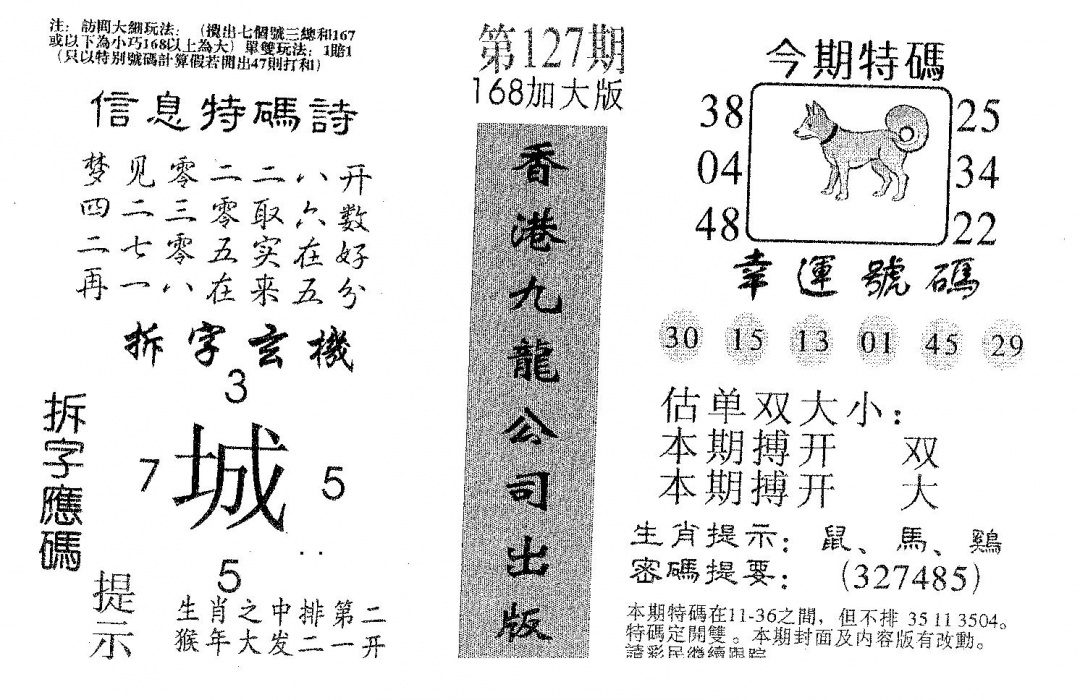 注：訪問大細玩法：（攪出七個號三總和167
或以下為小巧168以上為大）單雙玩法：1賠1
（只以特别號碼計算假若開出47則打和）
信息特碼詩
梦见零二二八开
四二三零取六数
二七零五实在好
再一八在来五分
拆字玄機
3
拆字應碼
7 城 5
5
提示
生肖之中排第二
猴年大发二一开
第127期
168加大版
香港九龍公司出版
今期特碼
38 25
04 34
48 22
幸運號碼
30 15 13 01 45 29
估单双大小：
本期搏开 双
本期搏开 大
生肖提示：鼠、馬、鷄
密碼提要：(327485)
本期特碼在11-36之間，但不排 35 11 3504。
特碼定開雙。本期封面及内容版有改動。
請彩民繼續跟踪